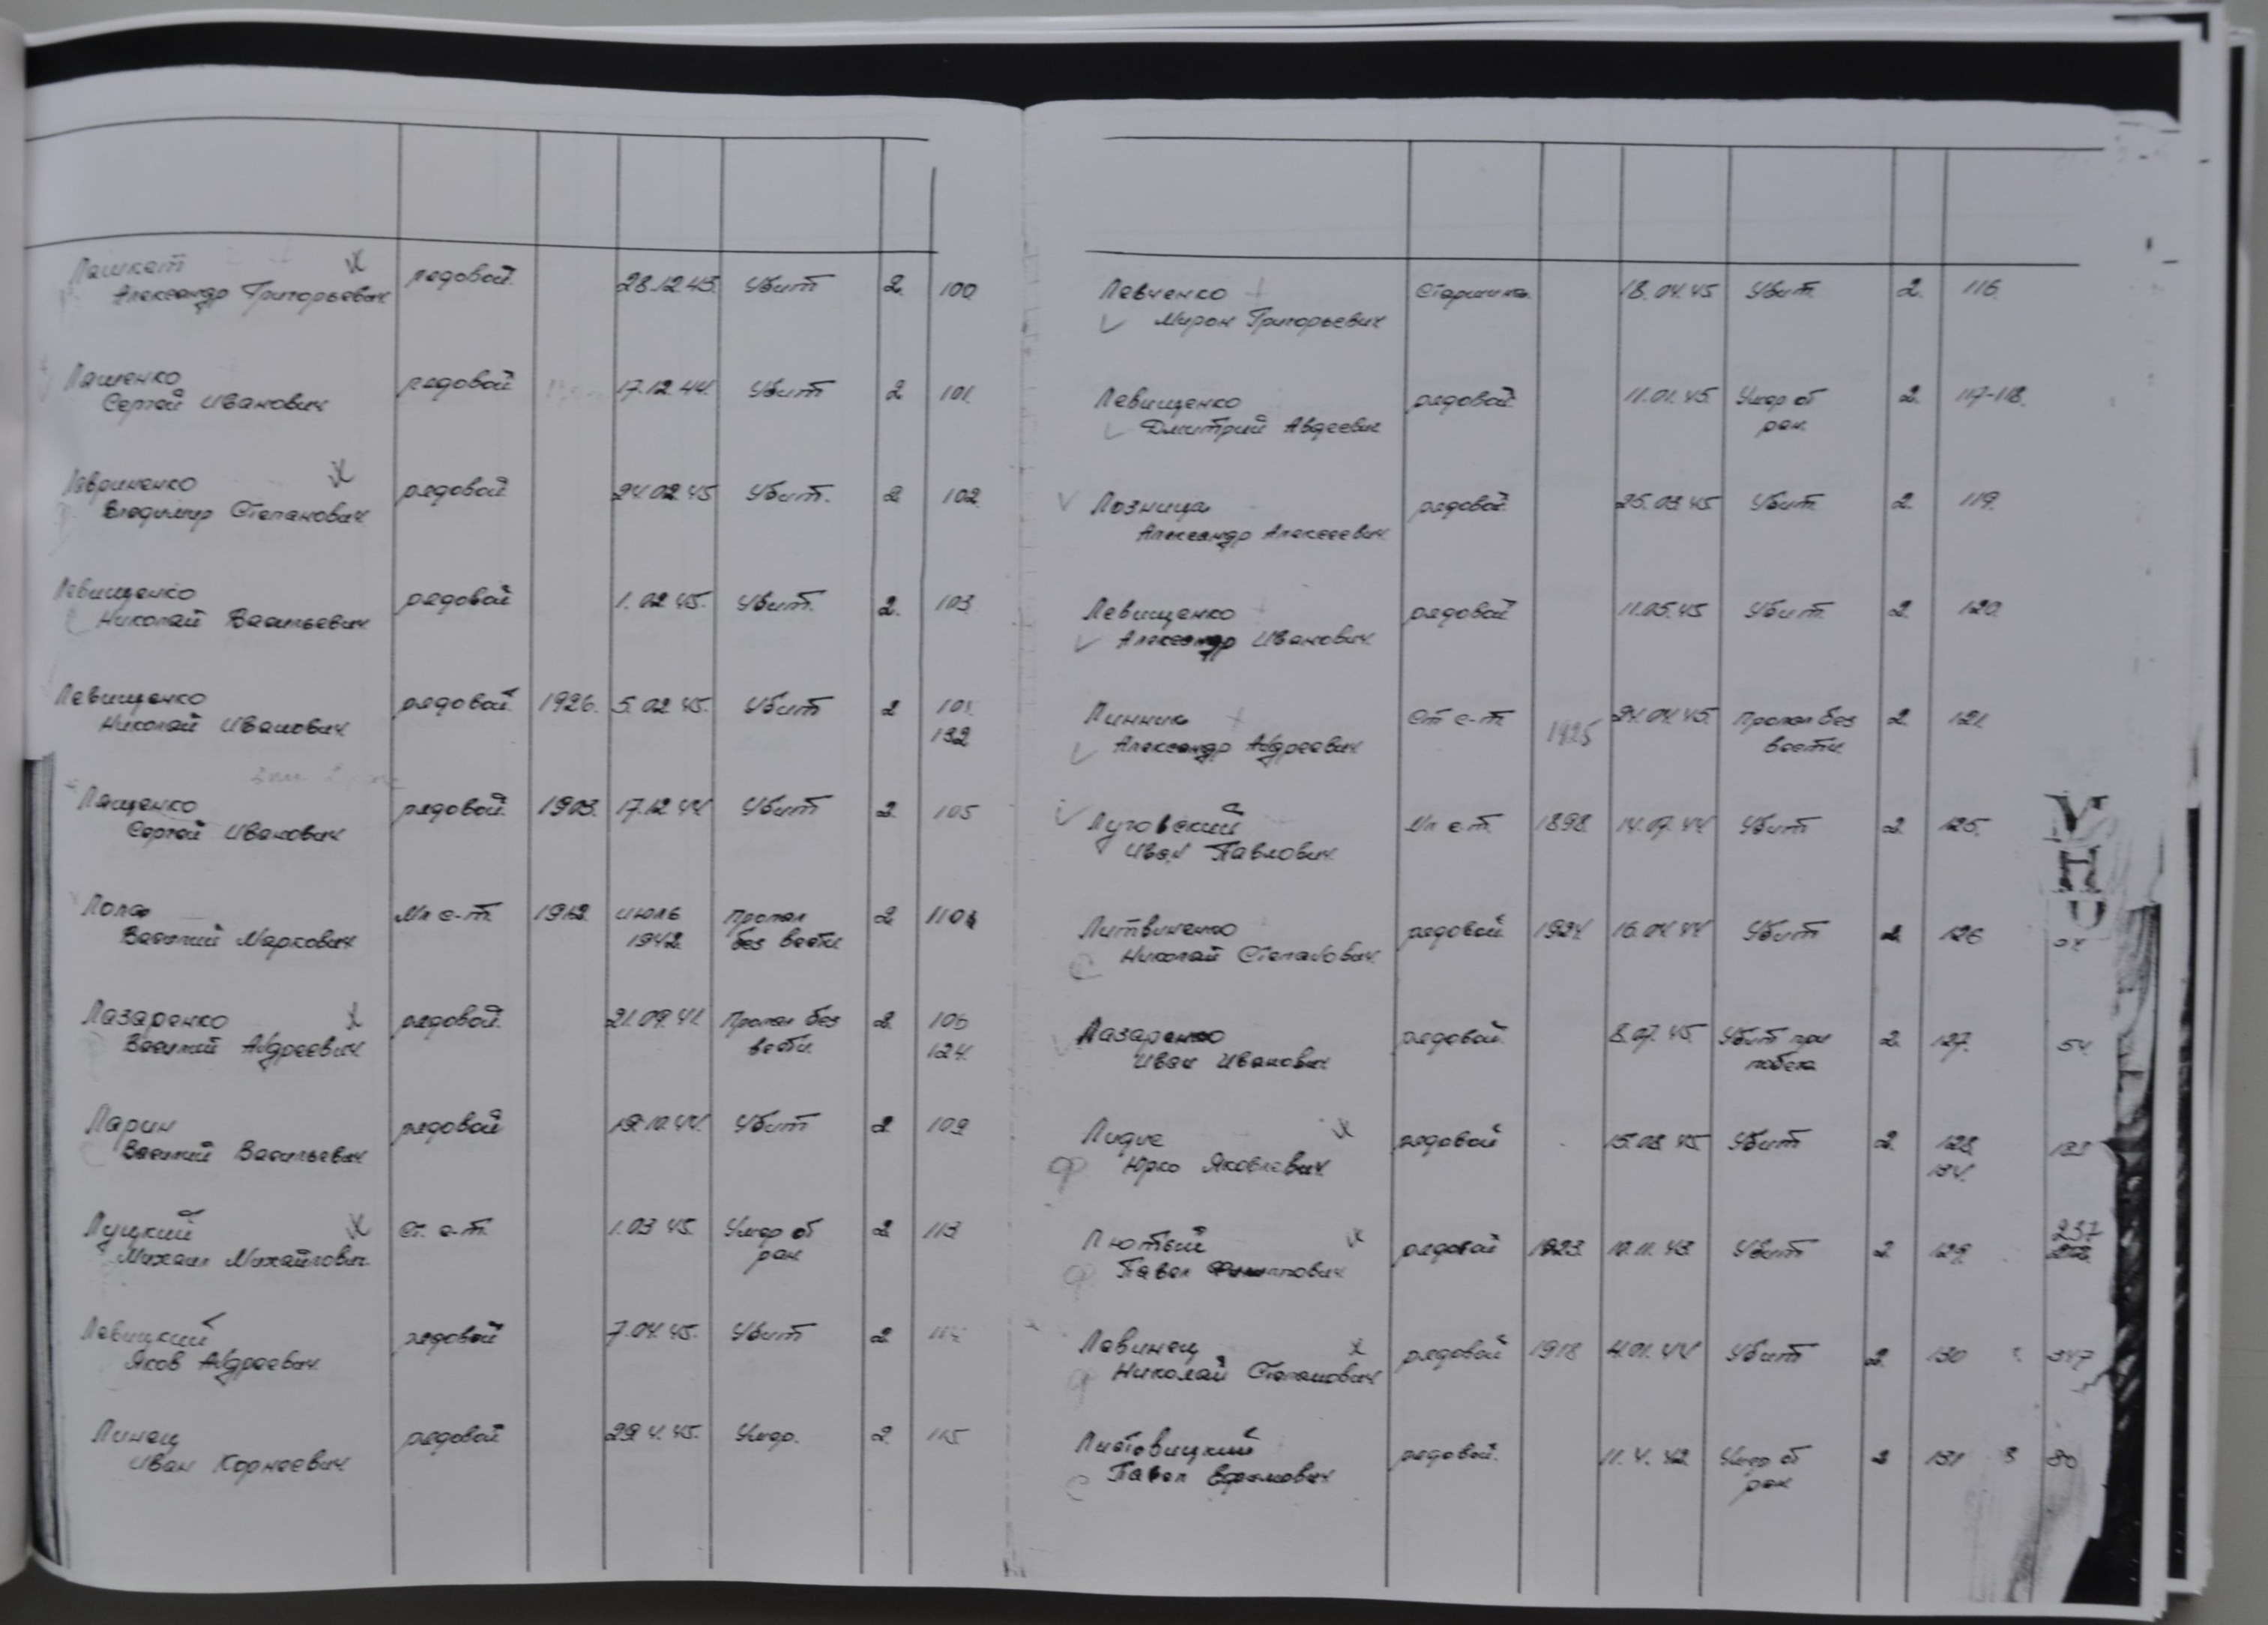 Лашкет
Александр Григорьевич рядовой 28.12.43. Убит 2. 100
Лашенко
Сергей Иванович рядовой 17.12.44. Убит 2 101.
Лавриненко
Владимир Степанович рядовой 24.02.45 Убит. 2 102
Левищенко
Николай Васильевич рядовой 1.02.45. Убит. 2. 103
Левищенко рядовой 1926. 5.02.45. Убит 2
Николай Иванович 132
Лященко
Сергей Иванович рядовой 1903. 17.12.44 Убит 2. 105
Лопа Мл с-т. 1912. июль Пропал 2
Василий Маркович 1942. без вести
Лазаренко рядовой 21.09.41. Пропал без 2. 106
Василий Андреевич вести 124.
Ларин
Василий Васильевич рядовой 19.10.44. Убит 2. 109
Луцкий Ст. с-т. 1.03.45. Умер от 2 113
Михаил Михайлович ран
Левицкий
Яков Андреевич рядовой 7.04.45. Убит 2.
Линец
Иван Корнеевич рядовой 29.4.45. Умер. 2. 115
Левченко Старшина 18.04.45 Убит. 2. 116.
Мирон Григорьевич
Левищенко рядовой 11.01.45. Умер от 2. 117-118.
Дмитрий Авдеевич ран.
Лозница рядовой 25.03.45 Убит 2. 119.
Александр Алексеевич
Левищенко рядовой 11.05.45 Убит 2. 120.
Александр Иванович
Линник Ст с-т 1925 24.04.45. Пропал без 2. 121.
Александр Андреевич вести
Луговский Мл с-т. 1898. 14.07.44 Убит 2. 125.
Иван Павлович
Литвиненко рядовой 1924. 16.04.44 Убит 2. 126
Николай Степанович
Лазаренко рядовой 8.07.45 Убит при 2. 127. 54.
Иван Иванович побеге
Лидие рядовой 15.03.45 Убит 2. 128
Юрко Яковлевич 134.
Лютый рядовой 1923. 10.11.43. Убит 2. 129. 237
Павел Филиппович
Левинец рядовой 1918 4.01.44 Убит 2. 130 347
Николай Степанович
Листовицкий рядовой. 11.4.42 Умер от 2 131 3 80
Павел Ефимович ран